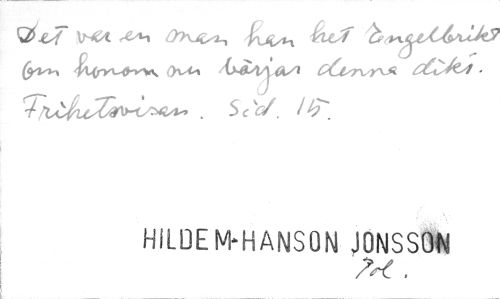 Det var en man han het Engelbrikt
om honom nu börjar denna dikt.
Frihetsvisan. Sid. 15.
HILDEM-HANSON JONSSON
Pol.